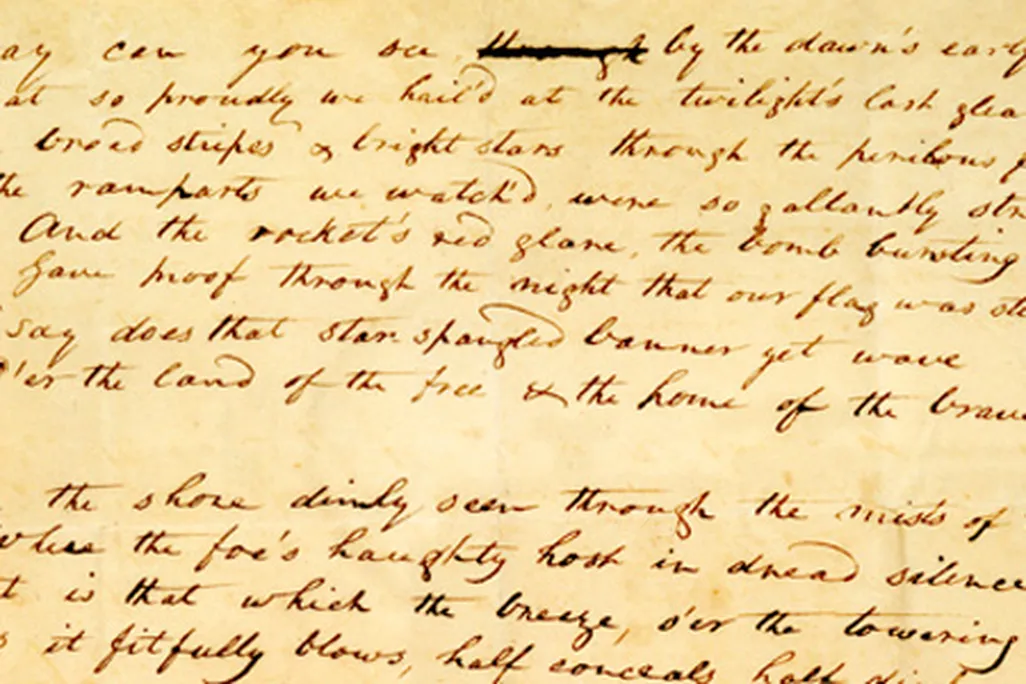 ay can you see, ~~through~~ by the dawn's early
at so proudly we hail'd at the twilight's last glea
broad stripes & bright stars through the perilous f
the ramparts we watch'd, were so gallantly stre
And the rocket's red glare, the bomb bursting
Gave proof through the night that our flag was sti
say does that star-spangled banner yet wave
O'er the land of the free & the home of the brave
the shore dimly seen through the mists of
where the foe's haughty host in dread silence
t is that which the breeze, o'er the towering
s it fitfully blows, half conceals, half di